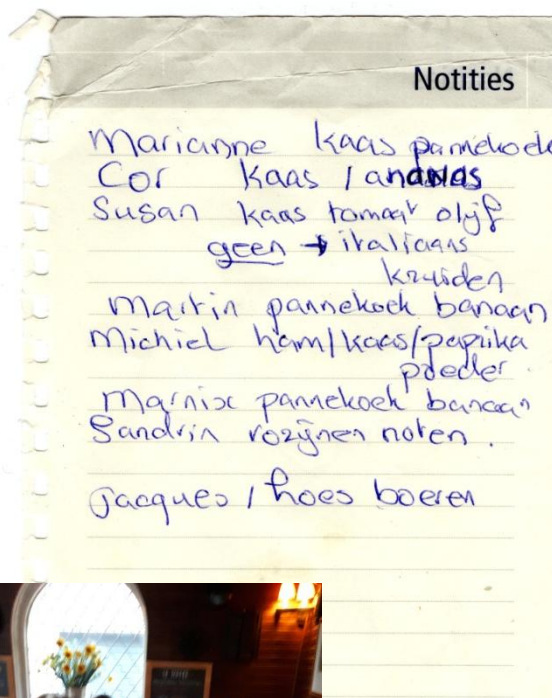 Notities
Marianne kaas pannekoek
Cor kaas / ananas
Susan kaas tomaat olijf
geen → italiaans
kruiden
Martin pannekoek banaan
Michiel ham/kaas/paprika
poeder
Marnix pannekoek banaan
Sandrin rozijnen noten.
Jacques / hoes boeren